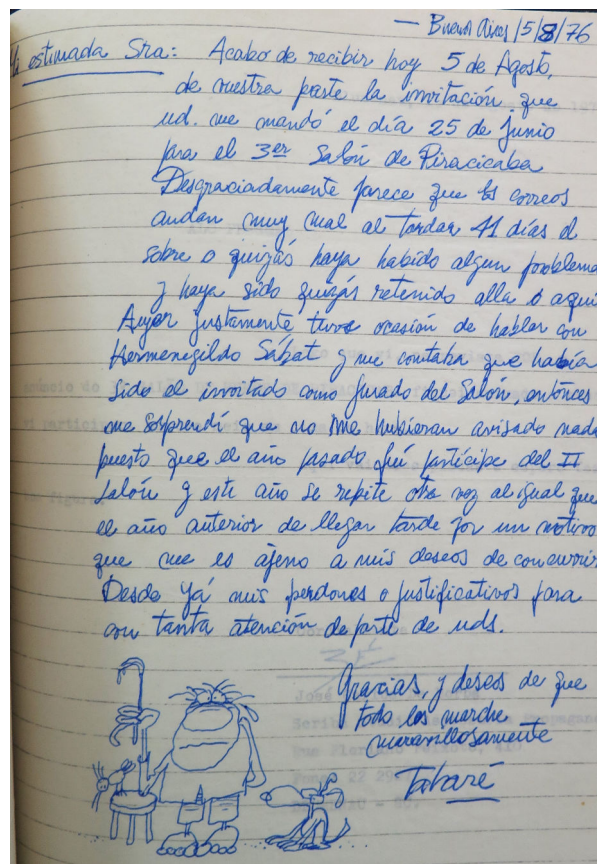 — Buenos Aires /5/8/76
Mi estimada Sra: Acabo de recibir hoy 5 de Agosto,
de vuestra parte la invitación que
ud. me mandó el día 25 de junio
para el 3er Salón de Piracicaba
Desgraciadamente parece que los correos
andan muy mal al tardar 41 días el
sobre o quizás haya habido algun problema
y haya sido quizás retenido alla o aquí
Ayer justamente tuve ocasión de hablar con
Hermenegildo Sábat y me contaba que había
sido el invitado como jurado del Salón, entónces
me sorprendí que no me hubieran avisado nada
puesto que el año pasado fuí partícipe del II
Salón y este año se repite otra vez al igual que
el año anterior de llegar tarde por un motivo
que me es ajeno a mis deseos de concurrir
Desde yá mis perdones o justificativos para
con tanta atención de parte de uds.
Gracias, y deseos de que
todo les marche
maravillosamente
Tabaré